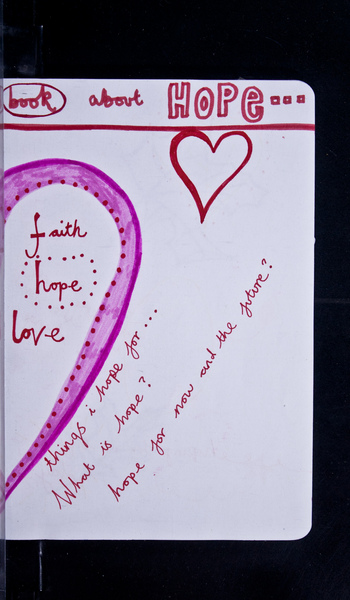 book about HOPE...
faith
hope
love
things i hope for...
What is hope?
hope for now and the future?